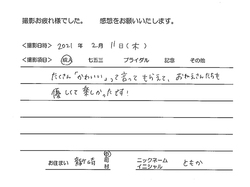 撮影お疲れ様でした。 感想をお願いいたします。
<撮影日時> 2021 年 2 月 11 日 (木)
<撮影項目> 成人 七五三 ブライダル 記念 その他
たくさん「かわいい」って言ってもらえて、おねえさんたちも
優しくて楽しかったです!
お住まい 町 村 ニックネーム イニシャル ともか